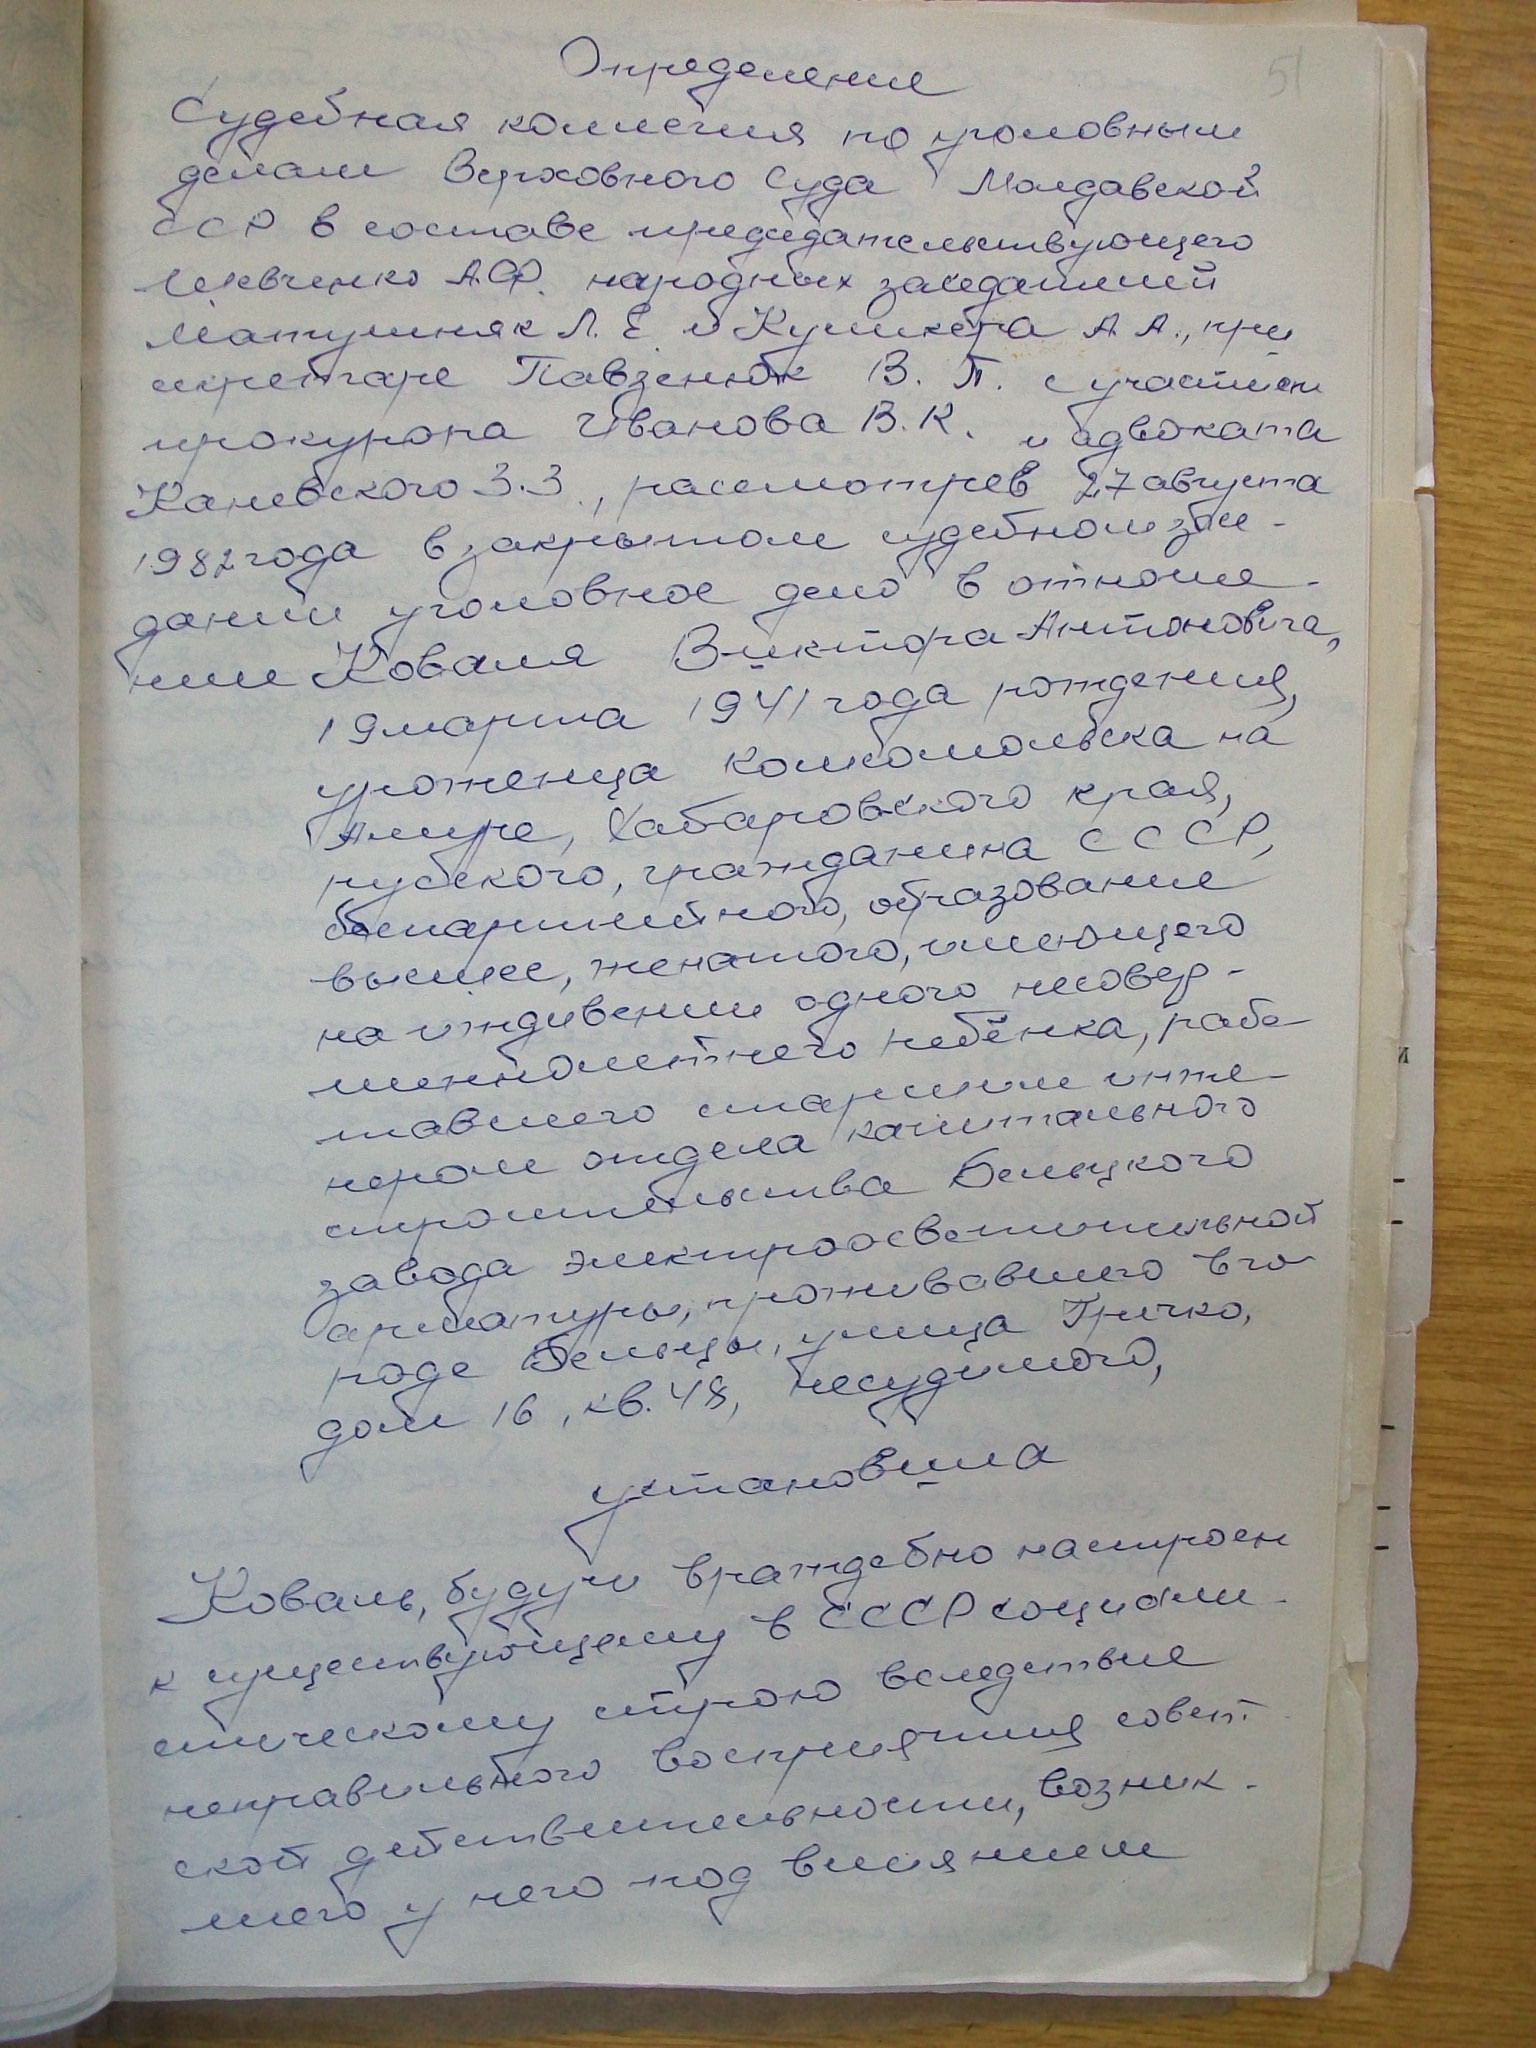 51
Определение
Судебная коллегия по уголовным
делам Верховного Суда Молдавской
ССР в составе председательствующего
Шевченко А.Ф. народных заседателей
Матушняк Л. Е. и Кушнера А. А., при
секретаре Павзенюк В. П. с участием
прокурора Иванова В. К. и адвоката
Каневского З.З., рассмотрев 27 августа
1982 года в закрытом судебном засе-
дании уголовное дело в отноше-
нии Коваля Виктора Антоновича,
19 марта 1941 года рождения,
уроженца Комсомольска на
Амуре, Хабаровского края,
русского, гражданина СССР,
беспартийного, образование
высшее, женатого, имеющего
на иждивении одного несовер-
шеннолетнего ребёнка, рабо
тавшего старшим инже-
нером отдела капитального
строительства Бельцкого
завода электроосветительной
арматуры, проживавшего в го
роде Бельцы, улица Гречко,
дом 16, кв. 48, несудимого,
установила
Коваль, будучи враждебно настроен
к существующему в СССР социали-
стическому строю вследствие
неправильного восприятия совет-
ской действительности, возник-
шего у него под влиянием
и